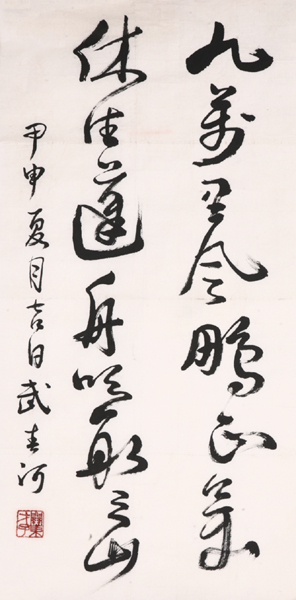 九萬里風鵬正举
休住蓬舟吹取三山
甲申夏月吉日武春河